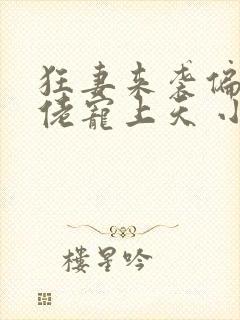 狂妻来袭偏
佬宠上天小
楼星吟